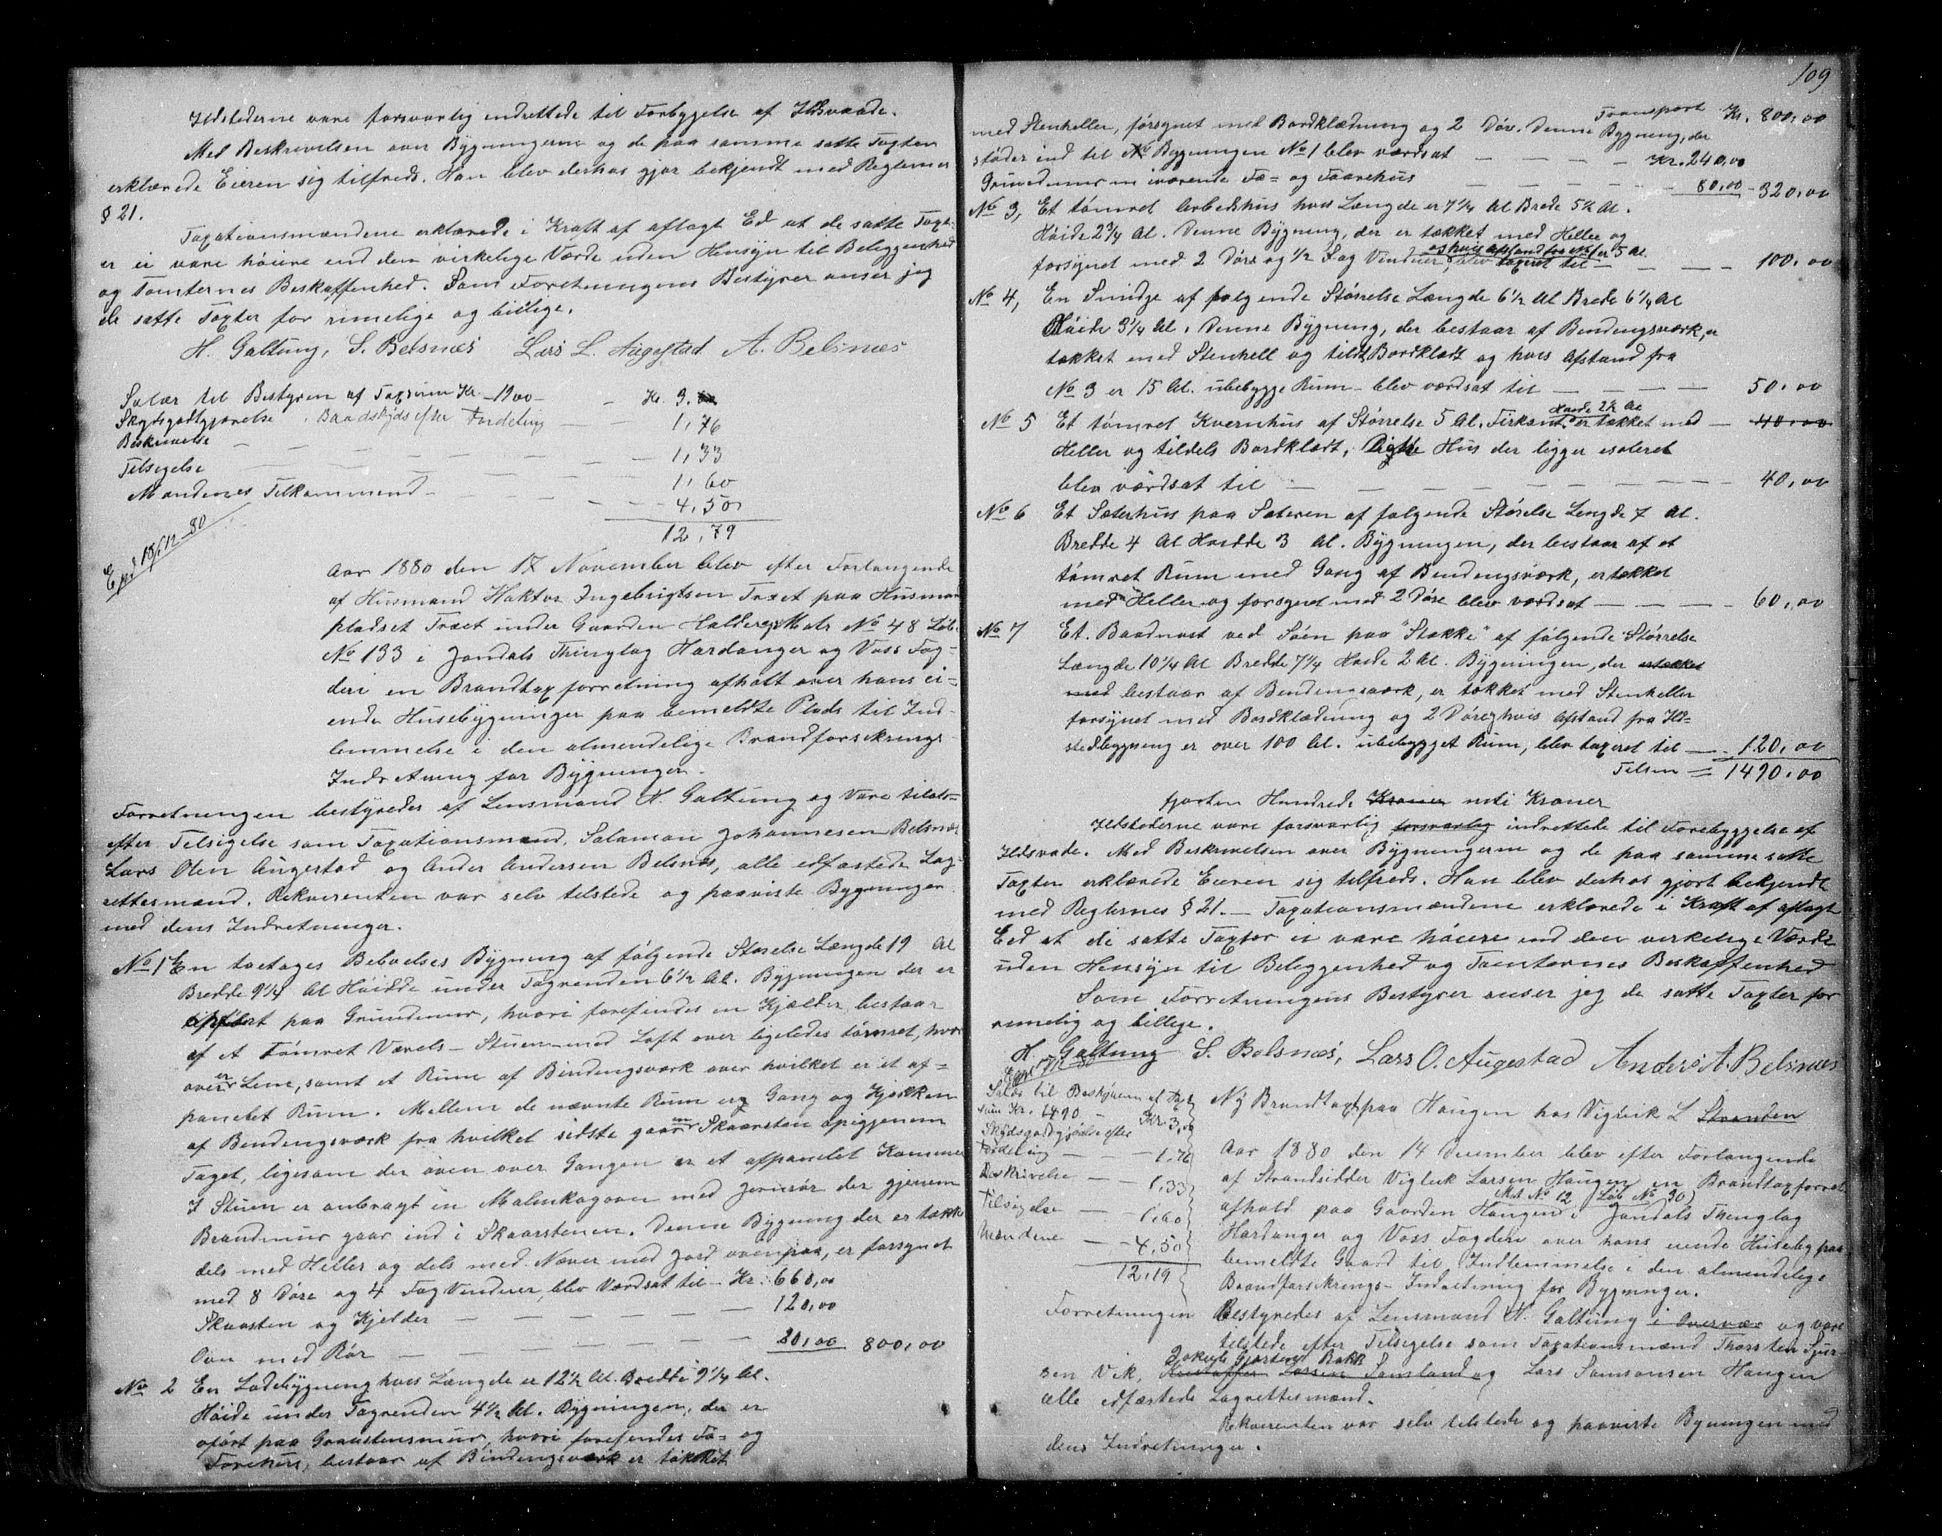 Ildstederne vare forsvarlig indrettede til Forbygelse af Ildsvaade.
Med Beskrivelsen over Bygningerne og de paa samme satte Taxten
erklærede Eieren sig tilfreds. Han blev derhos gjor bekjendt med Reglernes
§ 21.
Taxationsmændene erklærede i Kraft af aflagt Ed at de satte Taxt-
er ei vare høiere end den virkelige Værde uden Hensyn til Beleggenhed
og Tomternes Beskaffenhed. Som Forretningens Bestyrer anser jeg
de satte Taxter for rimelige og billige.
H. Galtung, S. Belsnæs Lars L. Augestad A. Belsnæs
Salær til Bestyren af Taxsum Kr. 1900 — Kr. 3.
Skydsgodtgjørelse Baadskyds efter Fordeling — 1,76
Beskrivelse — 1,33
Tilsigelse — 1,60
Mændenes Tilkommend — 4,50
12,79
Exp 13/12-80
Aar 1880 den 17 November blev efter Forlangende
af Husmand Haktor Ingebrigtsen Træet paa Husman
pladset Træet under Gaarden Halderg Matr No 48 Løb
No 133 i Jondals Thinglag Hardanger og Voss Fog-
deri en Brandtaxforretning afholt over hans ei-
ende Husebygninger paa bemeldte Plads til Ind-
lemmelse i den almendelige Brandforsikrings
Indretning for Bygninger.
Forretningen bestyredes af Lensmand H. Galtung og Vare tilste-
efter Tilsigelse som Taxationsmænd, Salamon Johannesen Belsnæs
Lars Olen Augestad og Ander Andersen Belsnæs, alle edfæstede Lag-
rettesmænd. Rekverenten var selv tilstede og paaviste Bygningen
med dens Indretninger.
No 1 En toetages Bebvelses Bygning af følgende Størelse Længde 19 Al
Bredde 9 1/4 Al Høidde under Tagrenden 6 1/2 Al. Bygningen der er
opført paa Grundmur, hvori forefindes en Kjælder, bestaar
af et Tømret Værels - Stuen med Loft over ligeledes tømret, hvor
over er Lem, samt et Rum af Bindingsværk over hvilket er et af-
panelet Rum. Mellem de nævnte Rum er Gang og Kjøkken
af Bendingsværk fra hvilket sidste gaar en Skaarsten opigjenem
Taget, ligesom der oven over Gangen er et afpanelet Kammer
I Stuen er anbragt en Malmkagoven med Jernrør der gjenem
Brandmur gaar ind i Skaarstenen. Denne Bygning der er tække
dels med Heller og dels med Næver med Jord ovenpaa, er forsynet
med 8 Døre og 4 Fag Venduer, blev Værdsat til - Kr. 660,00
Skaarsten og Kjelder — 120,00
Ovn med Rør — 20,00 800,00
No 2 En Ladebygning hvis Længde er 12 1/2 Al. Bredde 9 1/4 Al.
Høide under Tagrenden 4 1/2 Al. Bygningen, der er
opført paa Graastensmur, hvori forefindes Fæ- og
Faarehus, bestaar af Bindingsværk er tækket
109
Transport Kr. 800,00
med Stenheller, forsynet med Bordklædning og 2 Døre. Denne Bygning, der
støder ind til Bygningen No 1 blev værdsat — Kr. 240,00
Grundmuren iværende Fæ- og Faarehus — 80,00 - 320,00
No 3, Et tømret Arbedshus hvis Længde er 7 1/4 Al Brede 5 1/2 Al.
Høide 2 3/4 Al. Denne Bygning, der er tækket med Heller og
forsynet med 2 Døre og 1/2 Fag Venduer, og hvis Afstand fra No 1 er 5 Al blev taxeret til — 100,00
No 4, En Smidge af følgende Størrelse Længde 6 1/2 Al Brede 6 1/4 Al
Høide 3 1/4 Al. Denne Bygning, der bestaar af Bendingsværk, er
tækket med Stenhell og tildt Bordklædt og hvis Afstand fra
No 3 er 15 Al. ubebygge Rum - blev værdsat til — 50,00
No 5 Et tømret Kvernhus af Størrelse 5 Al. Firkant, Høide 2 1/2 Al er tækket med — 40,00
Heller og tildels Bordklædt, Dette Hus der ligger isoleret
blev værdsat til — 40,00
No 6 Et Sæterhus paa Sæteren af følgende Størelse Lengde 7 Al.
Bredde 4 Al Høidde 3 Al. Bygningen, der bestaar af et
tømret Rum med Gang af Bendingsværk, er tækket
med Heller og forsynet med 2 Døre blev værdsat — 60,00
No 7 Et Baadnøst ved Søen paa "Stække" af følgende Størrelse
Længde 10 1/4 Al Bredde 7 1/4 Høide 2 Al. Bygningen, der er tækket
med bestaar af Bendingsværk, er tækket med Stenheller
forsynet med Bordklædning og 2 Døre, hvis Afstand fra Ild-
stedbygning er over 100 Al. ubebygget Rum, blev taxeret til — 120,00
Tilsm = 1490,00
fjorten Hundrede Kroner nitti Kroner
Ildstederne vare forsvarlig forsvarlig indrettede til Forebyggelse af
Ildsvade. Med Beskrivelsen over Bygningerne og de paa samme satte
Taxter erklærede Eieren sig tilfreds. Han blev derhos gjort bekjendt
med Reglernes § 21. - Taxationsmændene erklærede i Kraft af aflagt
Eed at de satte Taxter ei vare høiere end den verkelige Værde
uden Hensyn til Beleggenhed og Tomternes Beskaffenhed
Som Forretningens Bestyrer anser jeg de satte Taxter for
remelig og billige.
H. Galtung S. Belsnæs, Lars O. Augestad Anders A. Belsnæs
Salær til Bestyreren af Tax
sum Kr. 1490 - Kr. 3,00
Skydsgodtgjørelse efter
Fordeling — 1,76
Beskrivelse — 1,33
Tilsigelse — 1,60
Mændene — 4,50
12,19
Ny Brandtaxt paa Haugen hos Vigleik L Stranden
Aar 1880 den 14 December blev efter Forlangende
af Strandsidder Vigleik Larsen Haugen en Brandtaxforret
afhold paa Gaarden Haugen Mat No 12 Løb No 30 i Jondals Thinglag
Hardanger og Voss Fogderi over hans eiende Husebyg paa
bemeldte Gaard til Indlemmelse i den almendelige
Brandforsikrings-Indretning for Bygninger.
Forretningen Bestyredes af Lensmand H. Galtung i Overvær og vare
tilstede efter Tilsigelse som Taxationsmænd Thorsten Sjur-
sen Vik, Jokum Gjertsen Bakk Kristoffer Larsen Samland og Lars Samsonsen Haugen
alle edfæstede Lagrettesmænd.
Rekverenten var selv tilstede og paaviste Bygningen med
dens Indretninger.